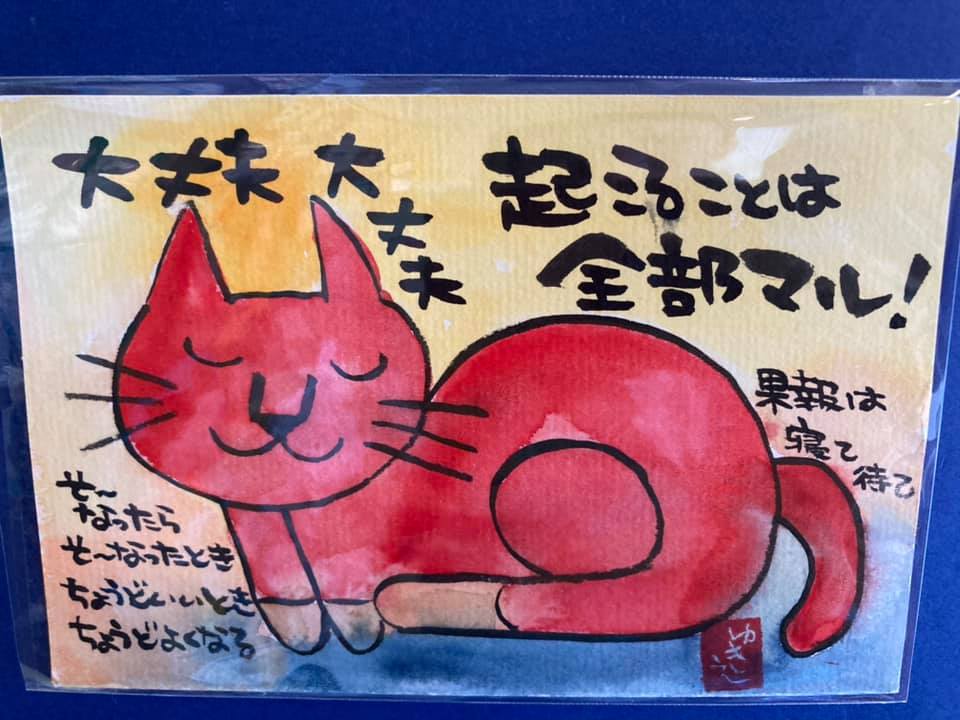 大丈夫 大
丈
夫
起こることは
全部マル!
果報は
寝て
待て
そ〜
なったら
そ〜なったとき
ちょうどいいとき
ちょうどよくなる